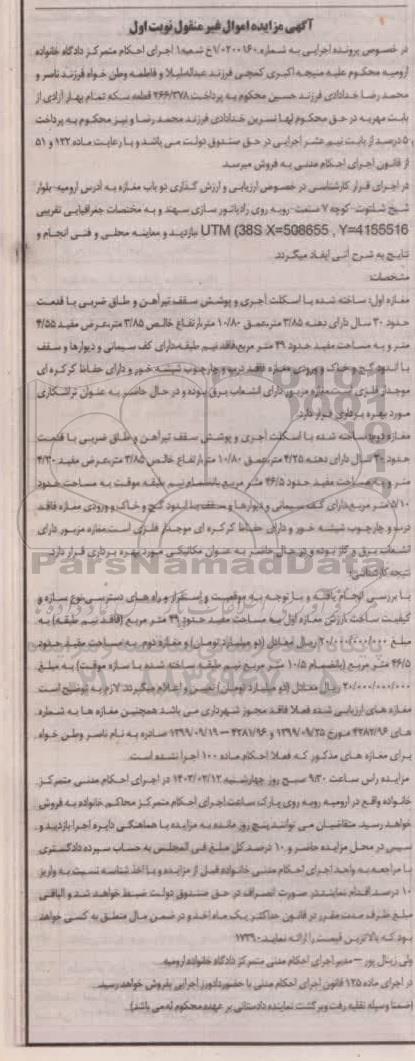 آگهی مزایده اموال غیر منقول نوبت اول
در خصوص پرونده اجرایی به شماره ۱/۰۲۰۰۱۶۰ج شعبه۱ اجرای احکام متمرکز دادگاه خانواده
ارومیه محکوم علیه منیجه اکبری کمجی فرزند عبداله‌لیلا و فاطمه وطن خواه فرزند ناصر و
محمد رضا خدادادی فرزند حسین محکوم به پرداخت ۲۶۶/۳۷۸ قطعه سکه تمام بهار آزادی از
بابت مهریه در حق محکوم لها نسرین خدادادی فرزند محمد رضا و نیز محکوم به پرداخت
۵ درصد از بابت نیم عشر اجرایی در حق صندوق دولت می باشد و با رعایت ماده ۱۲۲ و ۵۱
از قانون اجرای احکام مدنی به فروش میرسد.
در اجرای قرار کارشناسی در خصوص ارزیابی و ارزش گذاری دو باب مغازه به آدرس ارومیه- بلوار
شیخ شلتوت- کوچه ۷ صنعت- روبه روی رادیاتور سازی سهند و به مختصات جغرافیایی تقریبی
UTM (38S X=508655 , Y=4155516 بازدید و معاینه محلی و فنی انجام و
نتایج به شرح آتی ایفاد میگردد.
مشخصات:
مغازه اول: ساخته شده با اسکلت آجری و پوشش سقف تیرآهن و طاق ضربی با قدمت
حدود ۳۰ سال دارای دهنه ۳/۸۵ متر،عمق ۱۰/۸۰ متر،ارتفاع خالص ۳/۸۵ متر،عرض مفید ۴/۵۵
متر و به مساحت مفید حدود ۴۹ متر مربع،فاقد نیم طبقه،دارای کف سیمانی و دیوارها و سقف
با اندود گچ و خاک و ورودی مغازه فاقد درب و چارچوب شیشه خور و دارای حفاظ کرکره ای
موجدار فلزی است.مغازه مزبور دارای انشعاب برق بوده و در حال حاضر به عنوان تراشکاری
مورد بهره برداری قرار دارد.
مغازه دوم: ساخته شده با اسکلت آجری و پوشش سقف تیرآهن و طاق ضربی با قدمت
حدود ۳۰ سال دارای دهنه ۴/۲۵ متر،عمق ۱۰/۸۰ متر،ارتفاع خالص ۳/۸۵ متر،عرض مفید ۴/۳۰
متر و به مساحت مفید حدود ۴۶/۵ متر مربع بانضمام نیم طبقه موقت به مساحت حدود
۵/۱۰ متر مربع،دارای کف سیمانی و دیوارها و سقف با اندود گچ و خاک و ورودی مغازه فاقد
درب و چارچوب شیشه خور و دارای حفاظ کرکره ای موجدار فلزی است.مغازه مزبور دارای
انشعاب برق و گاز بوده و در حال حاضر به عنوان مکانیکی مورد بهره برداری قرار دارد.
نتیجه کارشناسی:
با بررسی انجام یافته و با توجه به موقعیت و استقرار و راه های دسترسی،نوع سازه و
کیفیت ساخت،ارزش مغازه اول به مساحت مفید حدود ۴۹ متر مربع (فاقد نیم طبقه) به
مبلغ ۲۰/۰۰۰/۰۰۰/۰۰۰ ریال معادل (دو میلیارد تومان) و مغازه دوم به مساحت مفید حدود
۴۶/۵ متر مربع (بانضمام ۱۰/۵ متر مربع نیم طبقه ساخته شده با سازه موقت) به مبلغ
۲۰/۰۰۰/۰۰۰/۰۰۰ ریال معادل (دو میلیارد تومان) تعیین و اعلام میگردد. لازم به توضیح است
مغازه های ارزیابی شده فعلا فاقد مجوز شهرداری می باشد همچنین مغازه ها به شماره
های ۴۲۸۲/۹۶ مورخ ۱۳۹۹/۰۹/۲۵ و ۴۲۸۱/۹۶ – ۱۳۹۹/۰۹/۱۹ صادره به نام ناصر وطن خواه
برای مغازه های مذکور که فعلا احکام ماده ۱۰۰ اجرا نشده است.
مزایده راس ساعت ۹:۳۰ صبح روز چهارشنبه ۱۴۰۳/۰۳/۱۲ در اجرای احکام مدنی متمرکز
خانواده واقع در ارومیه روبه روی پارک ساعت اجرای احکام متمرکز محاکم خانواده به فروش
خواهد رسید. متقاضیان می توانند پنج روز مانده به مزایده با هماهنگی دایره اجرا بازدید و
سپس در محل مزایده حاضر و ۱۰ درصد کل مبلغ فی المجلس به حساب سپرده دادگستری
با مراجعه به واحد اجرای احکام مدنی خانواده قبل از مزایده و با اخذ شناسه نسبت به واریز
۱۰ درصد اقدام نمایند.در صورت انصراف در حق صندوق دولت ضبط خواهد شد و الباقی
مبلغ ظرف مدت مقرر در قانون حداکثر یک ماه اخذ و در ضمن مال متعلق به کسی خواهد
بود که بالاترین قیمت را ارائه نماید.۱۷۳۹۰
ولی زینال پور – مدیر اجرای احکام مدنی متمرکز دادگاه خانواده ارومیه
در اجرای ماده ۱۲۵ قانون اجرای احکام مدنی با حضور دادورز اجرایی بفروش خواهد رسید.
(ضمنا وسیله نقلیه رفت و برگشت نماینده دادستانی بر عهده محکوم له می باشد).
ParsNamadData